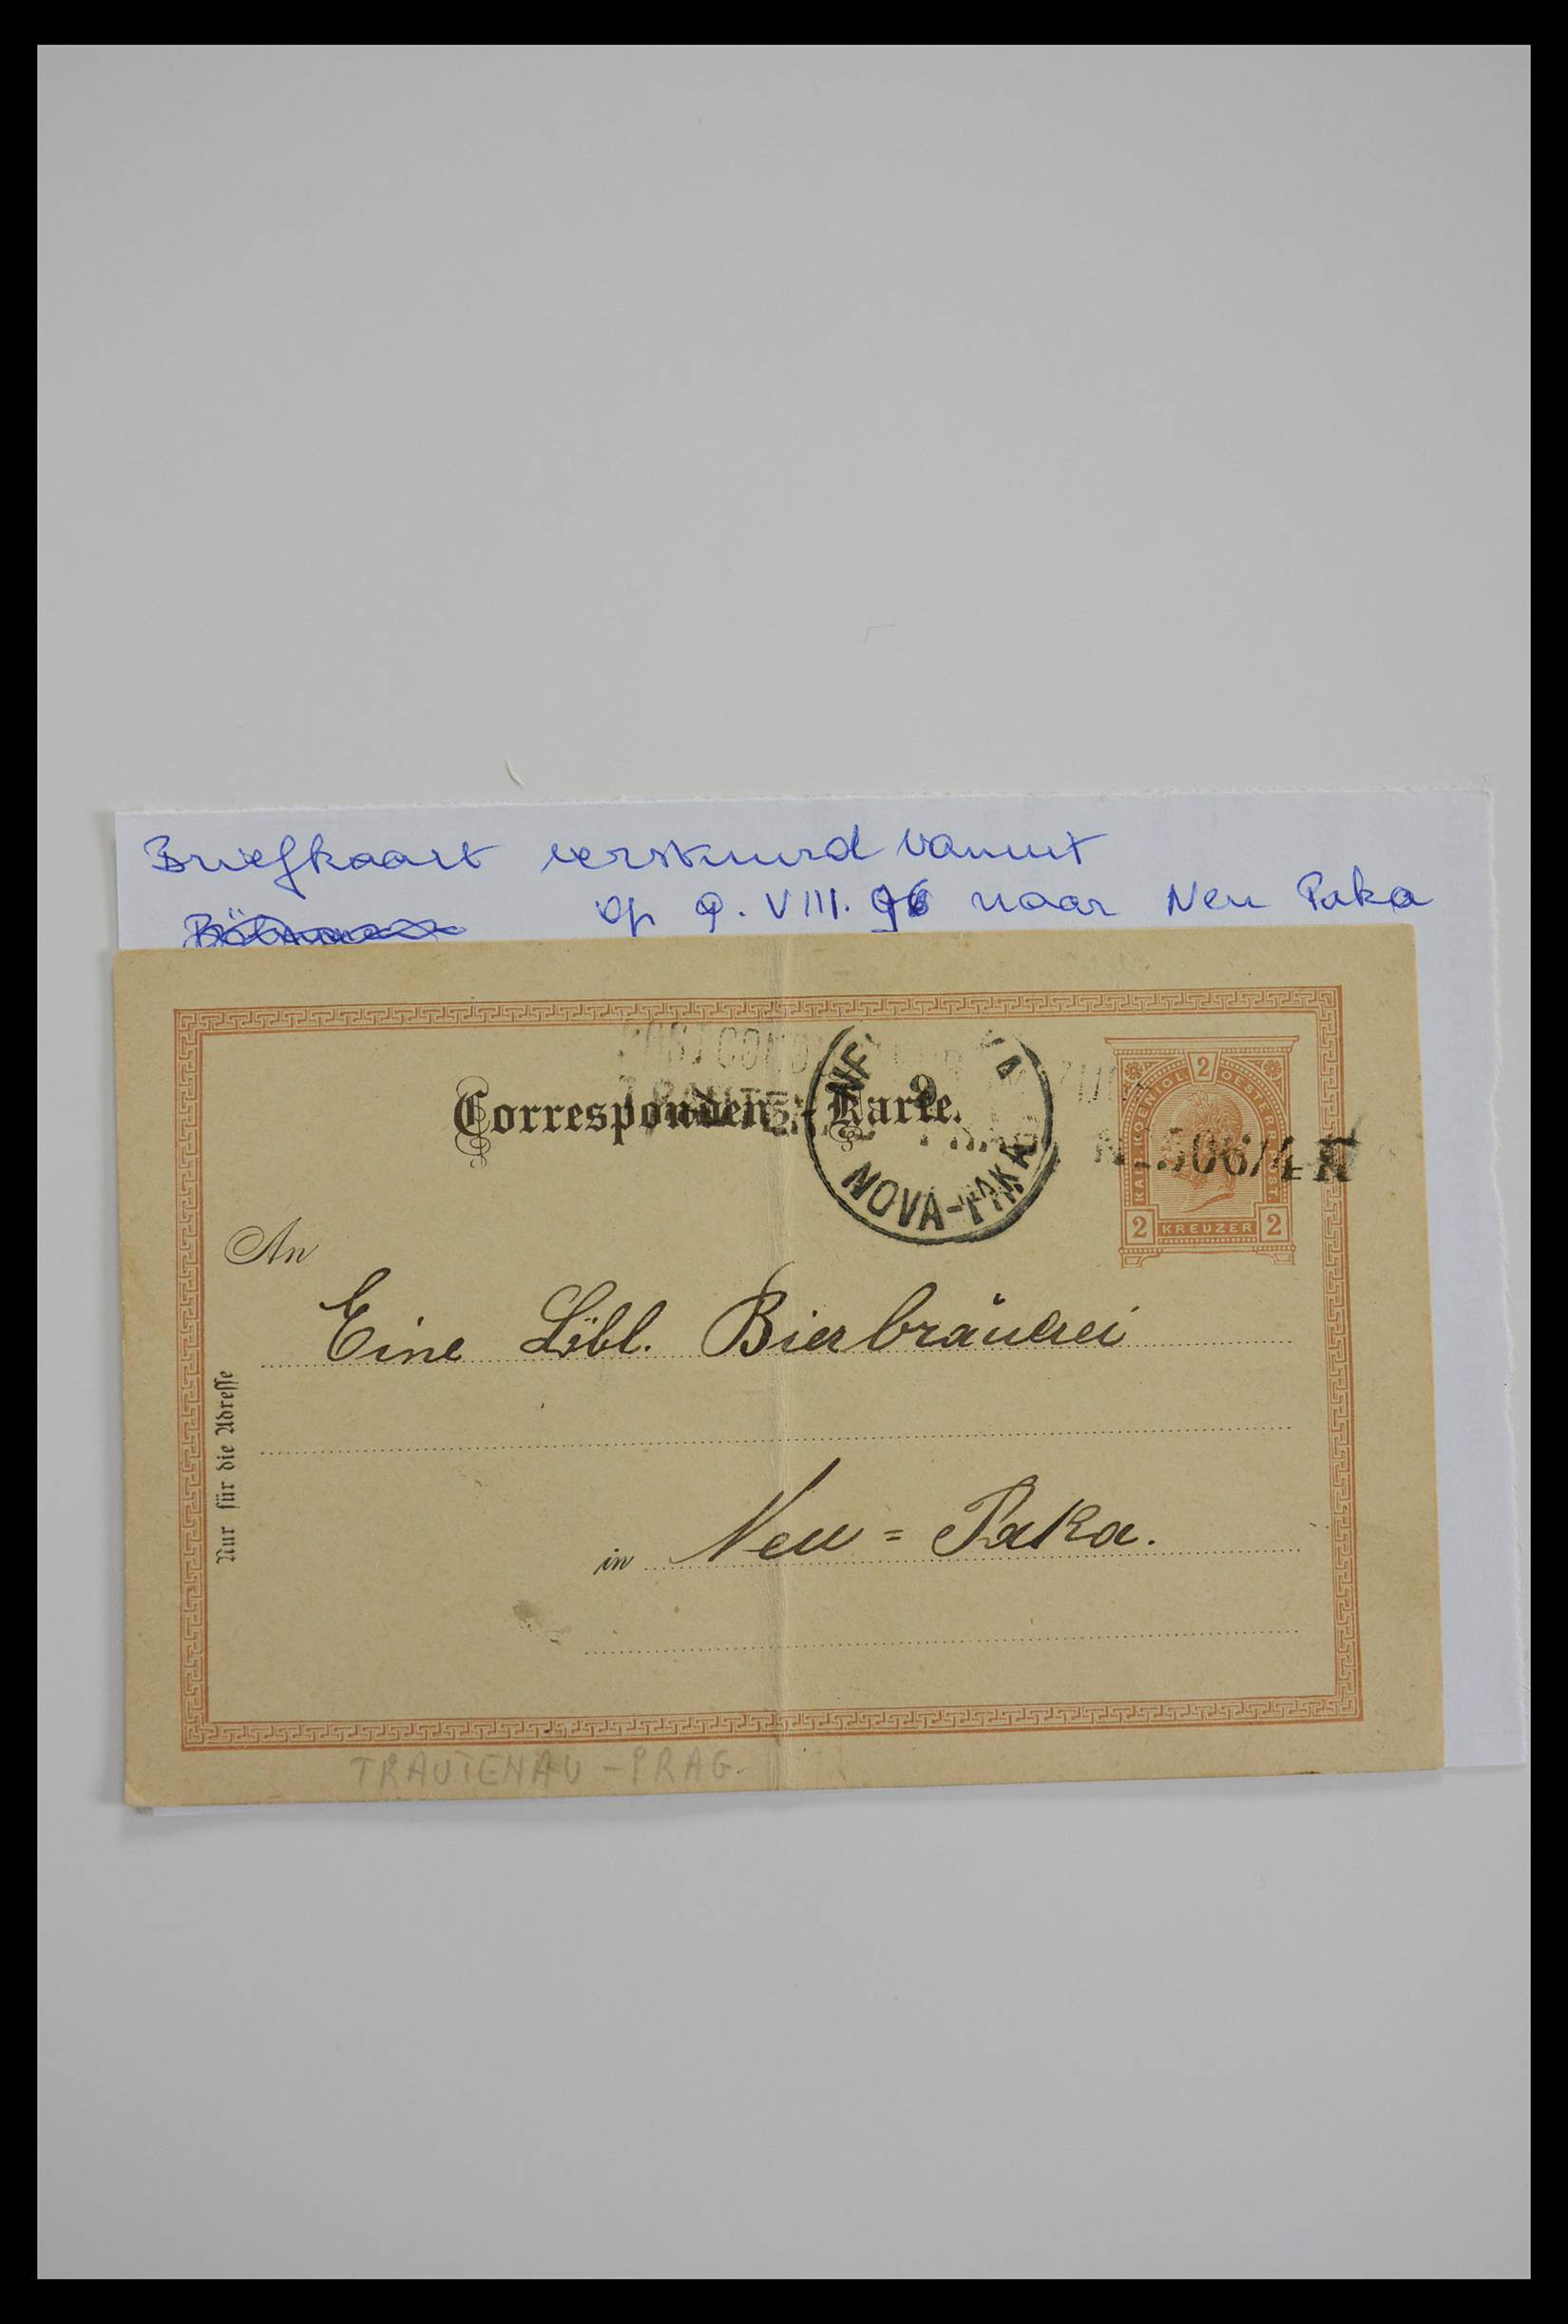 Briefkaart verstuurd vanuit
op 9. VIII. 96 naar Neu Paka
POSTCONDUCTEUR IM ZUGE
Correspondenz-Karte.
TRAUTENAU PRAG
9
NOVA-PAKA
N 506/4 II
2
KAIS. KOENIGL. OESTERR. POST
2 KREUZER 2
An
Eine Löbl. Bierbräuerei
Nur für die Adresse
in Neu = Paka.
TRAUTENAU - PRAG.